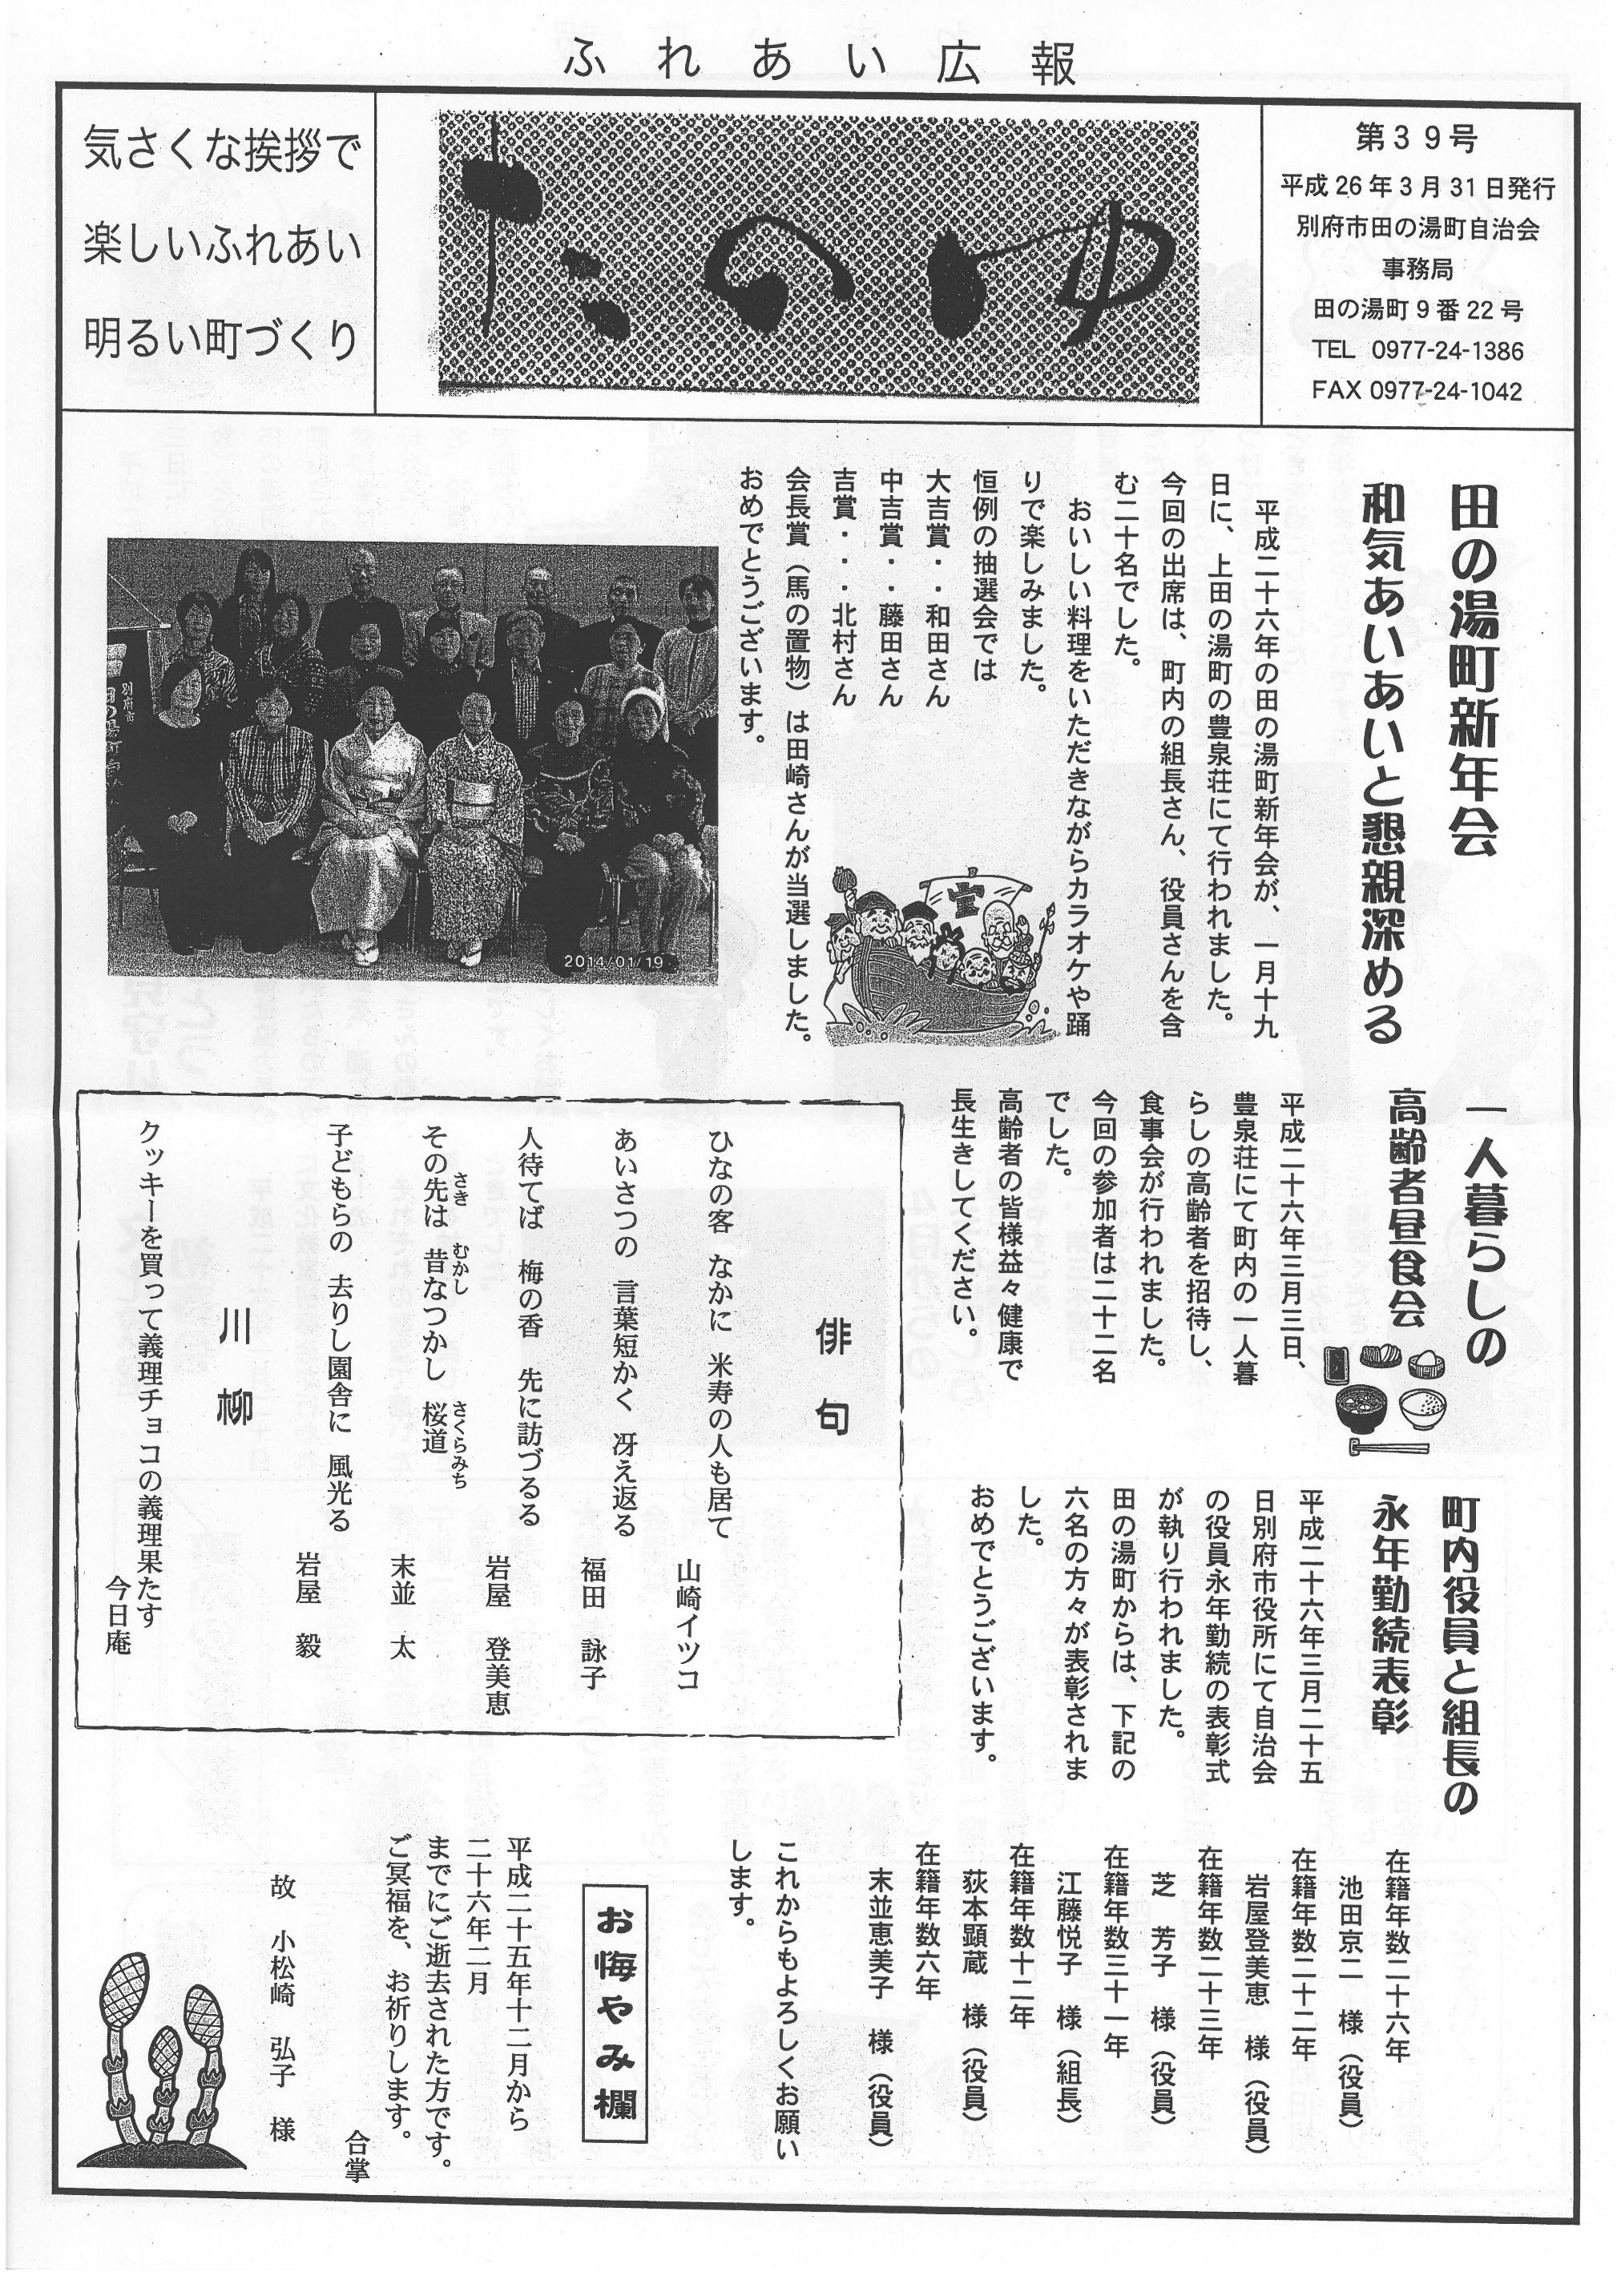 ふれあい広報
気さくな挨拶で
楽しいふれあい
明るい町づくり
たのゆ
第39号
平成26年3月31日発行
別府市田の湯町自治会
事務局
田の湯町9番22号
TEL 0977-24-1386
FAX 0977-24-1042
田の湯町新年会
和気あいあいと懇親深める
平成二十六年の田の湯町新年会が、一月十九
日に、上田の湯町の豊泉荘にて行われました。
今回の出席は、町内の組長さん、役員さんを含
む二十名でした。
おいしい料理をいただきながらカラオケや踊
りで楽しみました。
恒例の抽選会では
大吉賞・・和田さん
中吉賞・・藤田さん
吉賞・・・北村さん
会長賞（馬の置物）は田崎さんが当選しました。
おめでとうございます。
宝
別府市
田の湯町
2014/01/19
一人暮らしの
高齢者昼食会
平成二十六年三月三日、
豊泉荘にて町内の一人暮
らしの高齢者を招待し、
食事会が行われました。
今回の参加者は二十二名
でした。
高齢者の皆様益々健康で
長生きしてください。
俳句
ひなの客 なかに 米寿の人も居て
山崎イツコ
あいさつの 言葉短かく 冴え返る
福田 詠子
人待てば 梅の香 先に訪づるる
岩屋 登美恵
その先は 昔なつかし 桜道
さき むかし さくらみち
末並 太
子どもらの 去りし園舎に 風光る
岩屋 毅
川柳
クッキーを買って義理チョコの義理果たす
今日庵
町内役員と組長の
永年勤続表彰
平成二十六年三月二十五
日別府市役所にて自治会
の役員永年勤続の表彰式
が執り行われました。
田の湯町からは、下記の
六名の方々が表彰されま
した。
おめでとうございます。
在籍年数二十六年
池田京二 様（役員）
在籍年数二十二年
岩屋登美恵 様（役員）
在籍年数二十三年
芝 芳子 様（役員）
在籍年数三十一年
江藤悦子 様（組長）
在籍年数十二年
荻本顕蔵 様（役員）
在籍年数六年
末並恵美子 様（役員）
これからもよろしくお願い
します。
お悔やみ欄
平成二十五年十二月から
二十六年二月
までにご逝去された方です。
ご冥福を、お祈りします。
合掌
故 小松崎 弘子 様